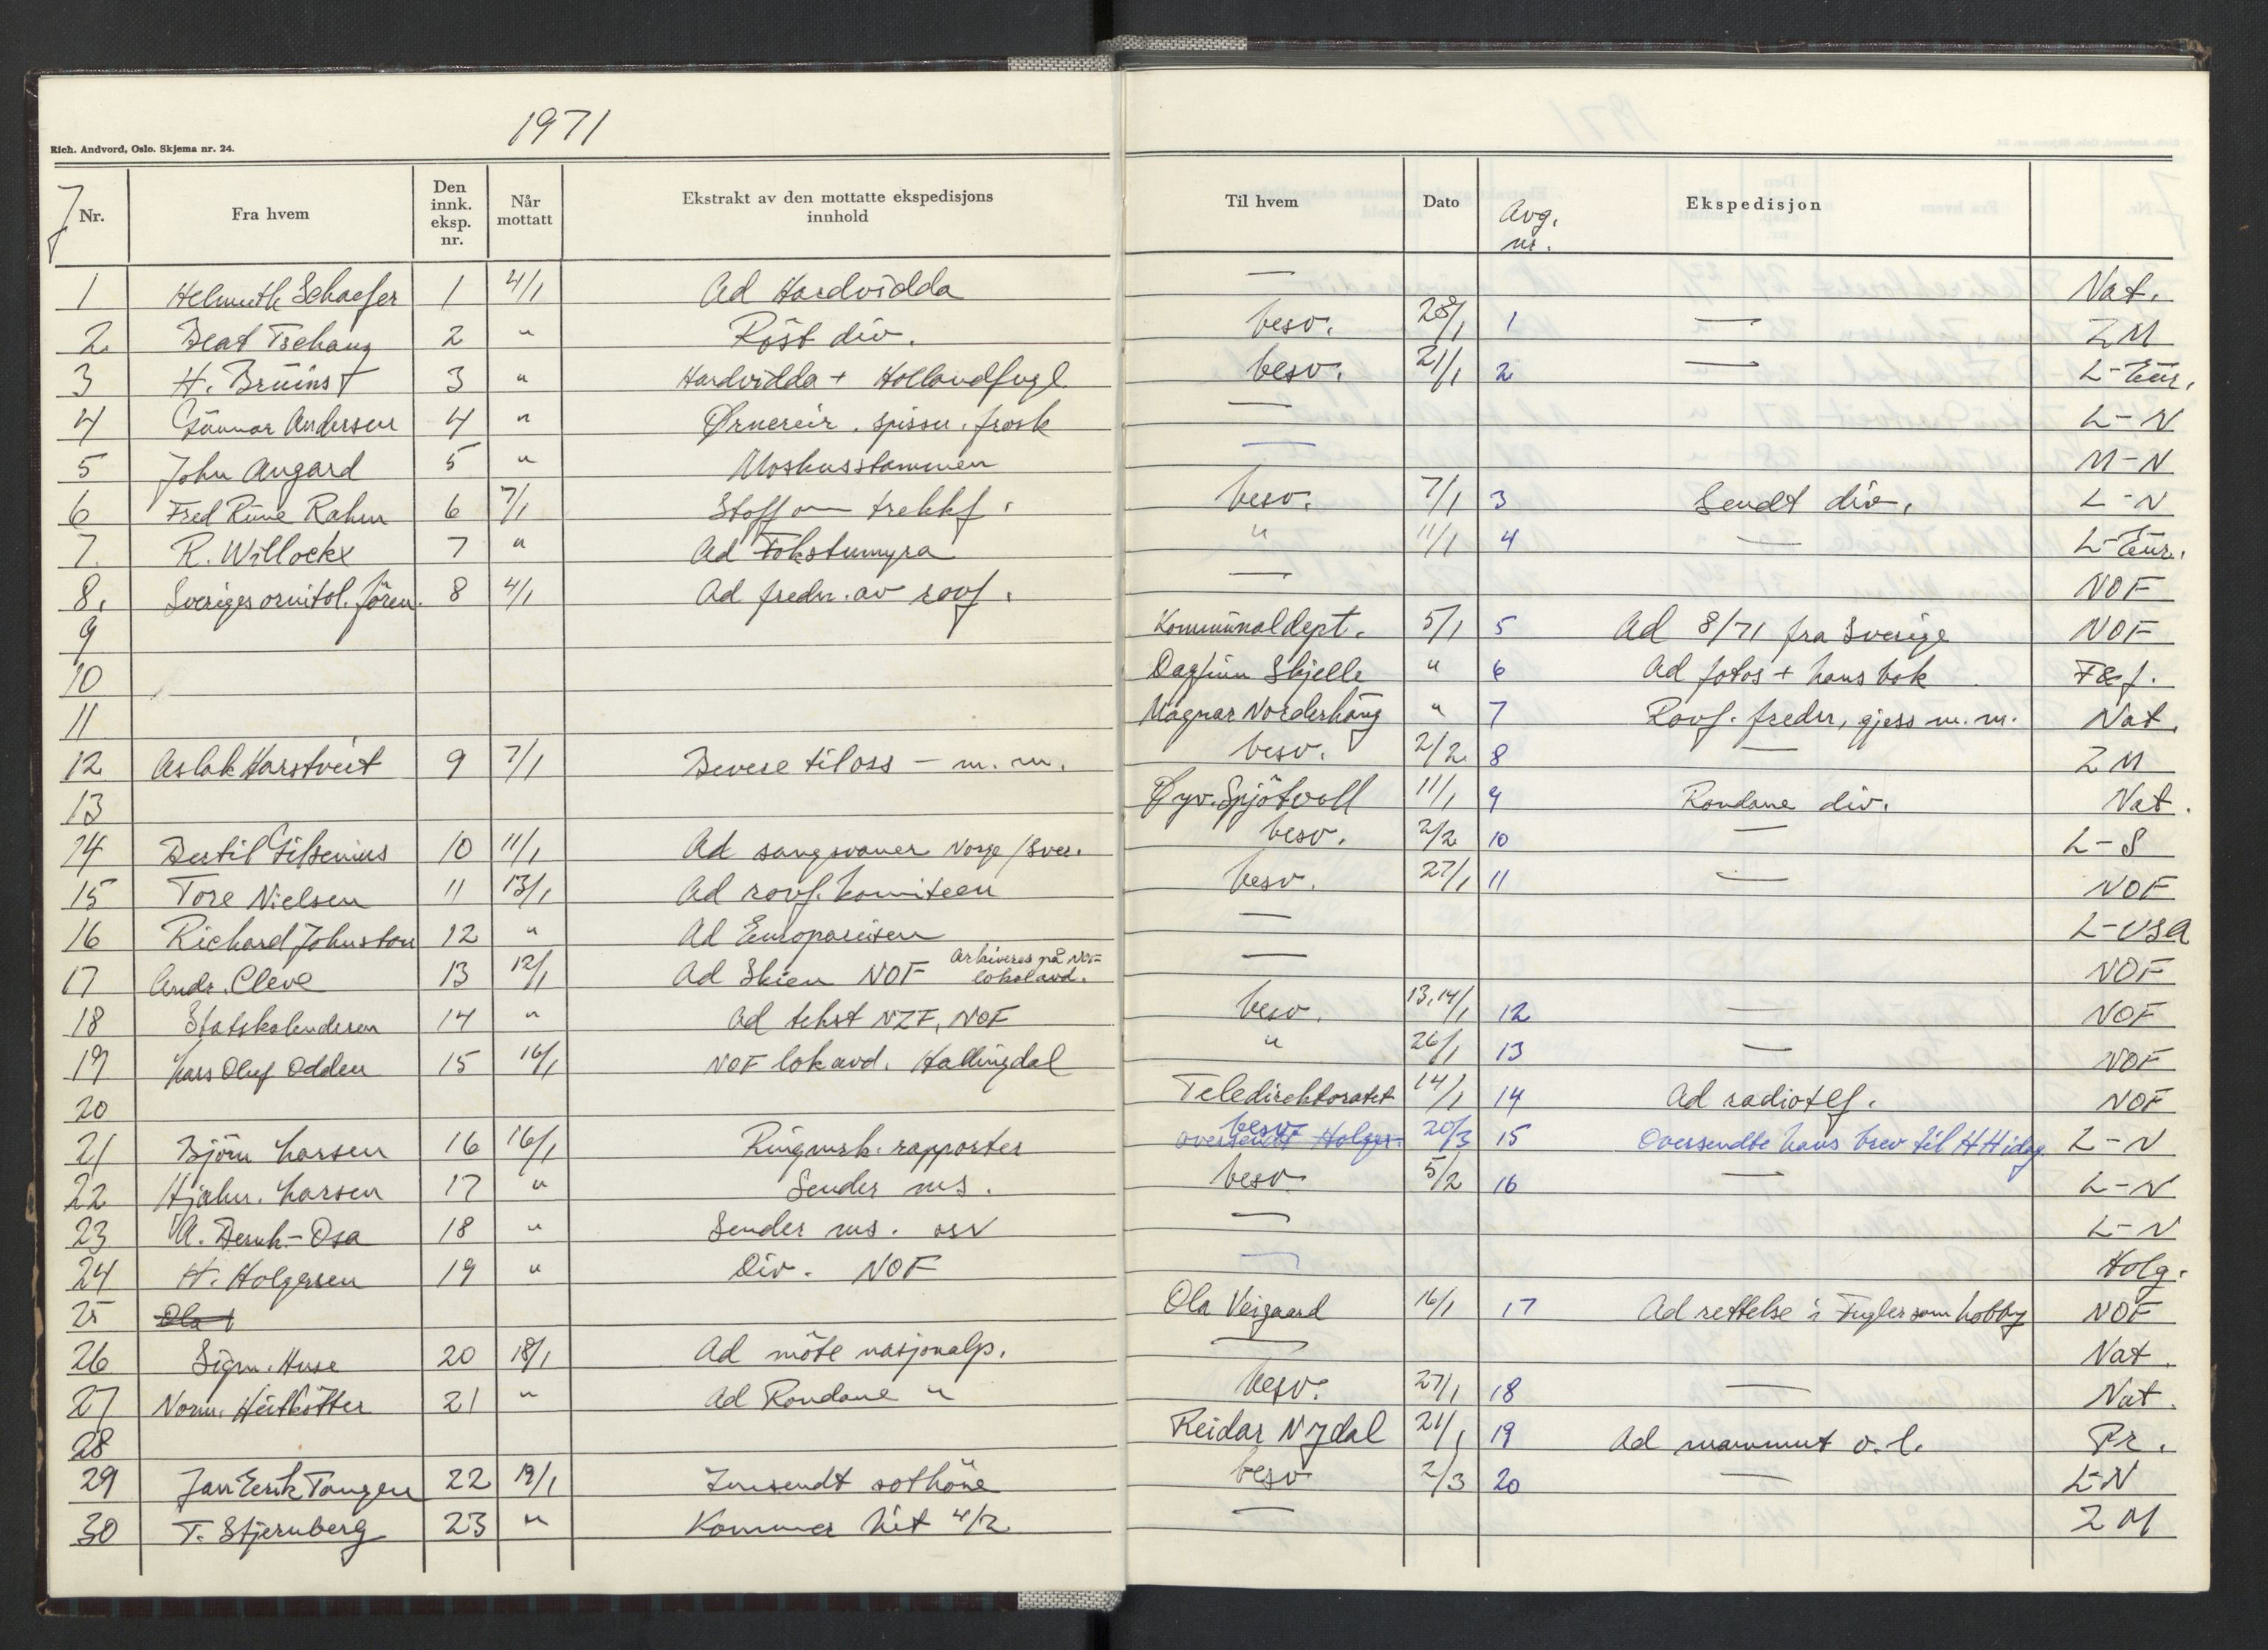 1971
Rich. Andvord, Oslo. Skjema nr. 24.
J Nr. Fra hvem Den innk. eksp. nr. Når mottatt Ekstrakt av den mottatte ekspedisjons innhold Til hvem Dato Avg. nr. Ekspedisjon
1 Helmuth Schaefer 1 4/1 Ad Hardvidda — Nat.
2 Beat Tschanz 2 " Röst div. besv. 28/1 1 — ZM
3 H. Brüins 3 " Hardvidda + Hollandfugl besv. 21/1 2 — L-Eur.
4 Gunnar Andersen 4 " Ørnereir. spissn. frosk — L-N
5 John Angard 5 " Moskusstammen — M-N
6 Fred Rune Rahm 6 7/1 Stoff om trekkf. besv. 7/1 3 Sendt div. L-N
7. R. Willockx 7 " Ad Fokstumyra " 11/1 4 — L-Eur.
8. Sveriges ornitol. fören. 8 4/1 Ad fredn. av rovf. — NOF
9 Kommunaldept. 5/1 5 Ad 8/71 fra Sverige NOF
10 Dagfinn Skjelle " 6 Ad fotos + hans bok F&f.
11 Magnar Norderhaug " 7 Rovf. fredn, gjess m.m. Nat.
12 Aslak Harstveit 9 7/1 Bevere til oss - m.m. besv. 2/2 8 — ZM
13 Øyv. Spjötvoll 11/1 9 Rondane div. Nat.
14 Bertil 10 11/1 Ad sangsvaner Norge/Sver. besv. 2/2 10 — L-S
15 Tore Nielsen 11 13/1 Ad rovf. komiteen besv. 27/1 11 — NOF
16 Richard Johnston 12 " Ad Europareisen — L-USA
17 Andr. Cleve 13 12/1 Ad Skien NOF Arkiveres på NOF lokalavd. — NOF
18 Statskalenderen 14 " Ad tekst NZF, NOF besv. 13,14/1 12 — NOF
19 Lars Oluf Odden 15 16/1 NOF lokavd. Hallingdal " 26/1 13 — NOF
20 Teledirektoratet 14/1 14 Ad radiotlf. NOF
21 Björn Larsen 16 16/1 Ringmrk. rapporter oversendt Holger. besv. 20/3 15 Oversendte hans brev til HH idag L-N
22 Hjalm. Larsen 17 " Sender ms. besv 5/2 16 — L-N
23 A. Bernh-Osa 18 " Sender ms. osv — L-N
24 H. Holgersen 19 " Div. NOF — Holg.
25 Ola Ola Veigaard 16/1 17 Ad rettelse i Fugler som hobby NOF
26 Sigm. Huse 20 18/1 Ad möte nasjonalp. — Nat.
27 Norm. Heitkötter 21 " Ad Rondane " besv. 27/1 18 — Nat.
28 Reidar Nydal 21/1 19 Ad mammut o.l. Pr.
29 Jan Erik Tangen 22 19/1 Innsendt sothöne besv 2/3 20 — L-N
30 T. Stjernberg 23 " Kommer hit 4/2 — ZM